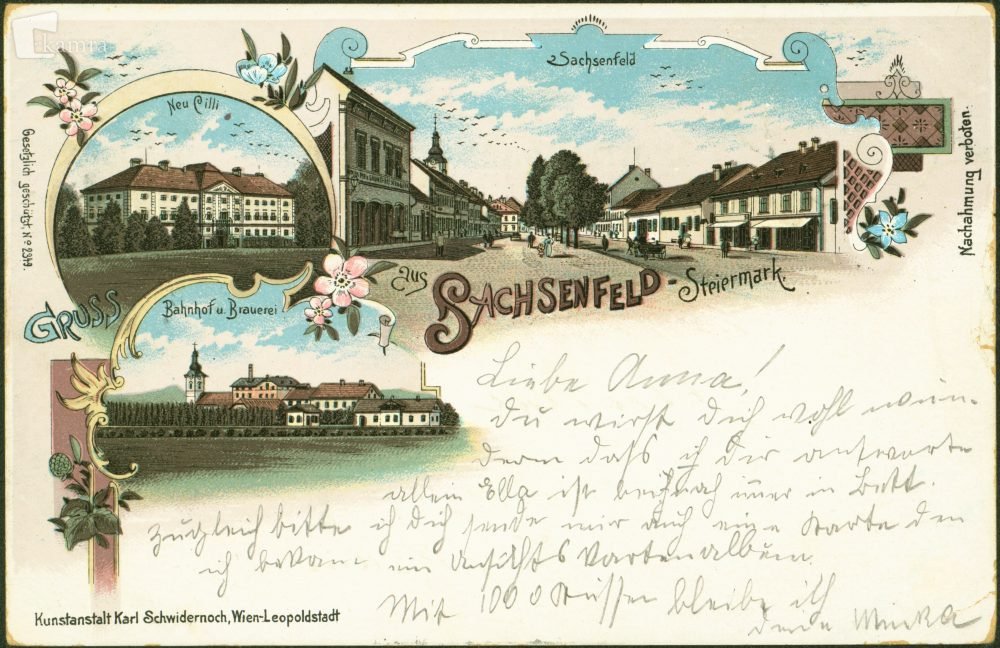 kamra
Neu Cilli
Sachsenfeld
Gesetzlich geschützt. Nº 2349.
Nachahmung verboten.
Gruss
aus
SACHSENFELD - Steiermark.
Bahnhof u. Brauerei
Liebe Anna!
Du wirst Dich wohl wun-
dern daß ich Dir antworte
allein Ella ist noch im Bett.
Zugleich bitte ich Dich sende mir auch eine Karte den
ich bekam ein Ansichts Kartenalbum.
Mit 1000 Küssen bleibe ich
deine Minka
Kunstanstalt Karl Schwidernoch, Wien-Leopoldstadt